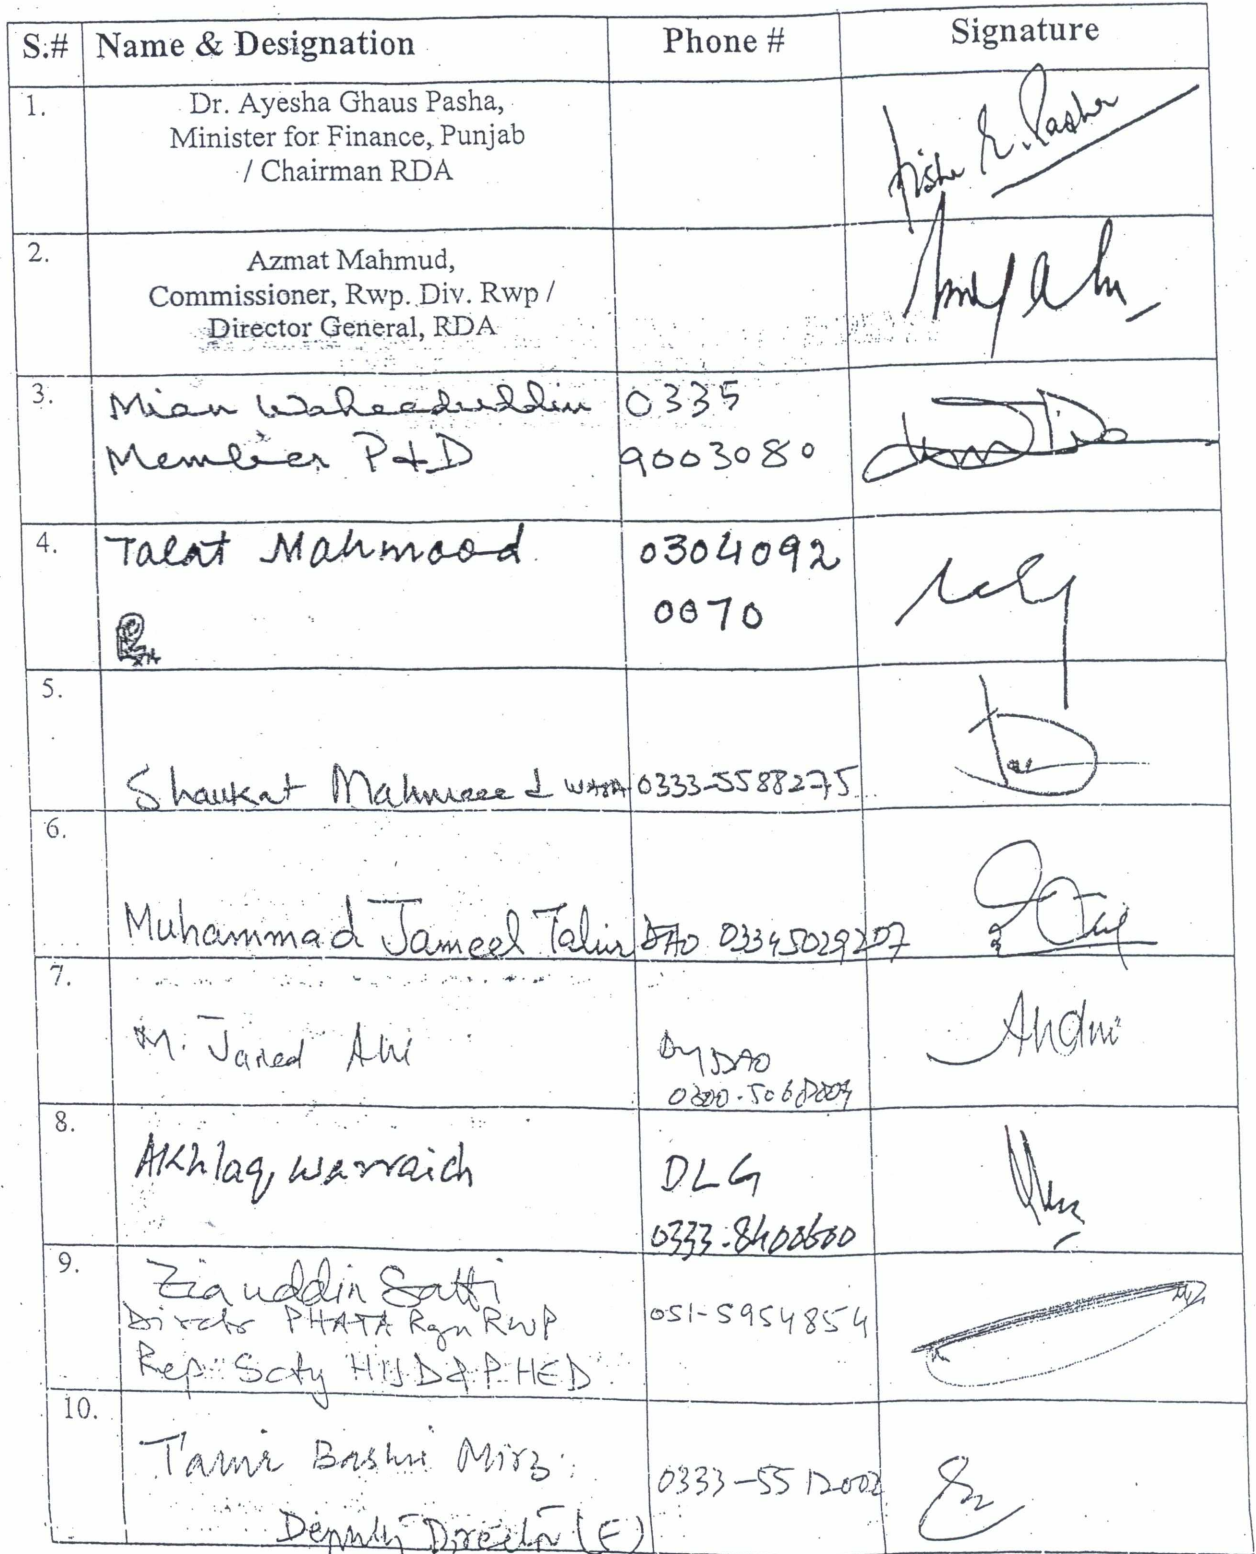 S.# Name & Designation Phone # Signature
1. Dr. Ayesha Ghaus Pasha,
Minister for Finance, Punjab
/ Chairman RDA
2. Azmat Mahmud,
Commissioner, Rwp. Div. Rwp /
Director General, RDA
3. Mian Waheeduddin 0335
Member P&D 9003080
4. Talat Mahmood 0304092
0070
5.
Shaukat Mahmood WASA 0333-5588275
6.
Muhammad Jameel Tahir DAO 03345029207
7.
M. Javed Ali Dy DAO
8.
Akhlaq warraich DLG
0333-8400600
9. Ziauddin Satti
Director PHATA Rgn RWP 051-5954854
Rep: Scty HUD&PHED
10.
Tamir Bashir Mirza
Deputy Director (E)